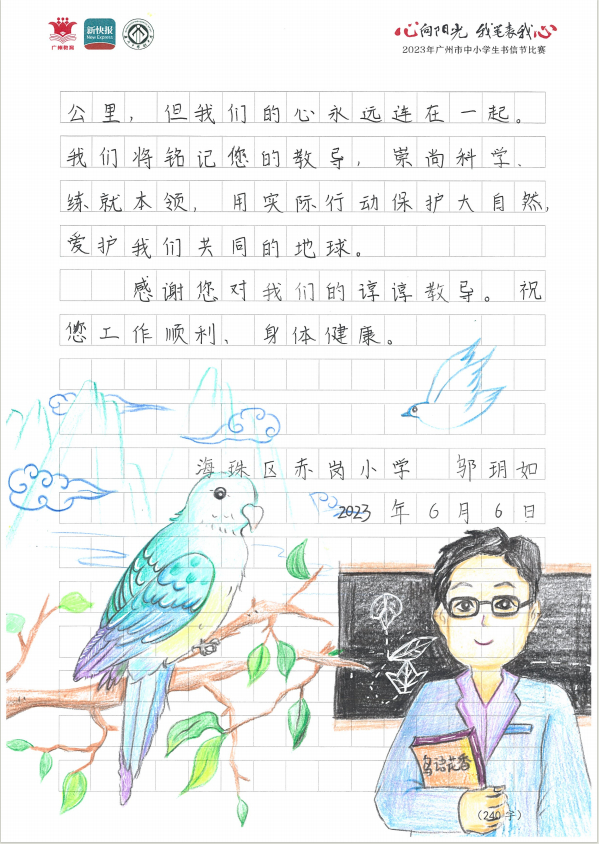 广州教育
新快报
New Express
心向阳光 我笔表我心
2023年广州市中小学生书信节比赛
公里，但我们的心永远连在一起。
我们将铭记您的教导，崇尚科学、
练就本领，用实际行动保护大自然，
爱护我们共同的地球。
感谢您对我们的谆谆教导。祝
您工作顺利、身体健康。
海珠区赤岗小学 邬玥如
2023年6月6日
鸟语花香
（240字）